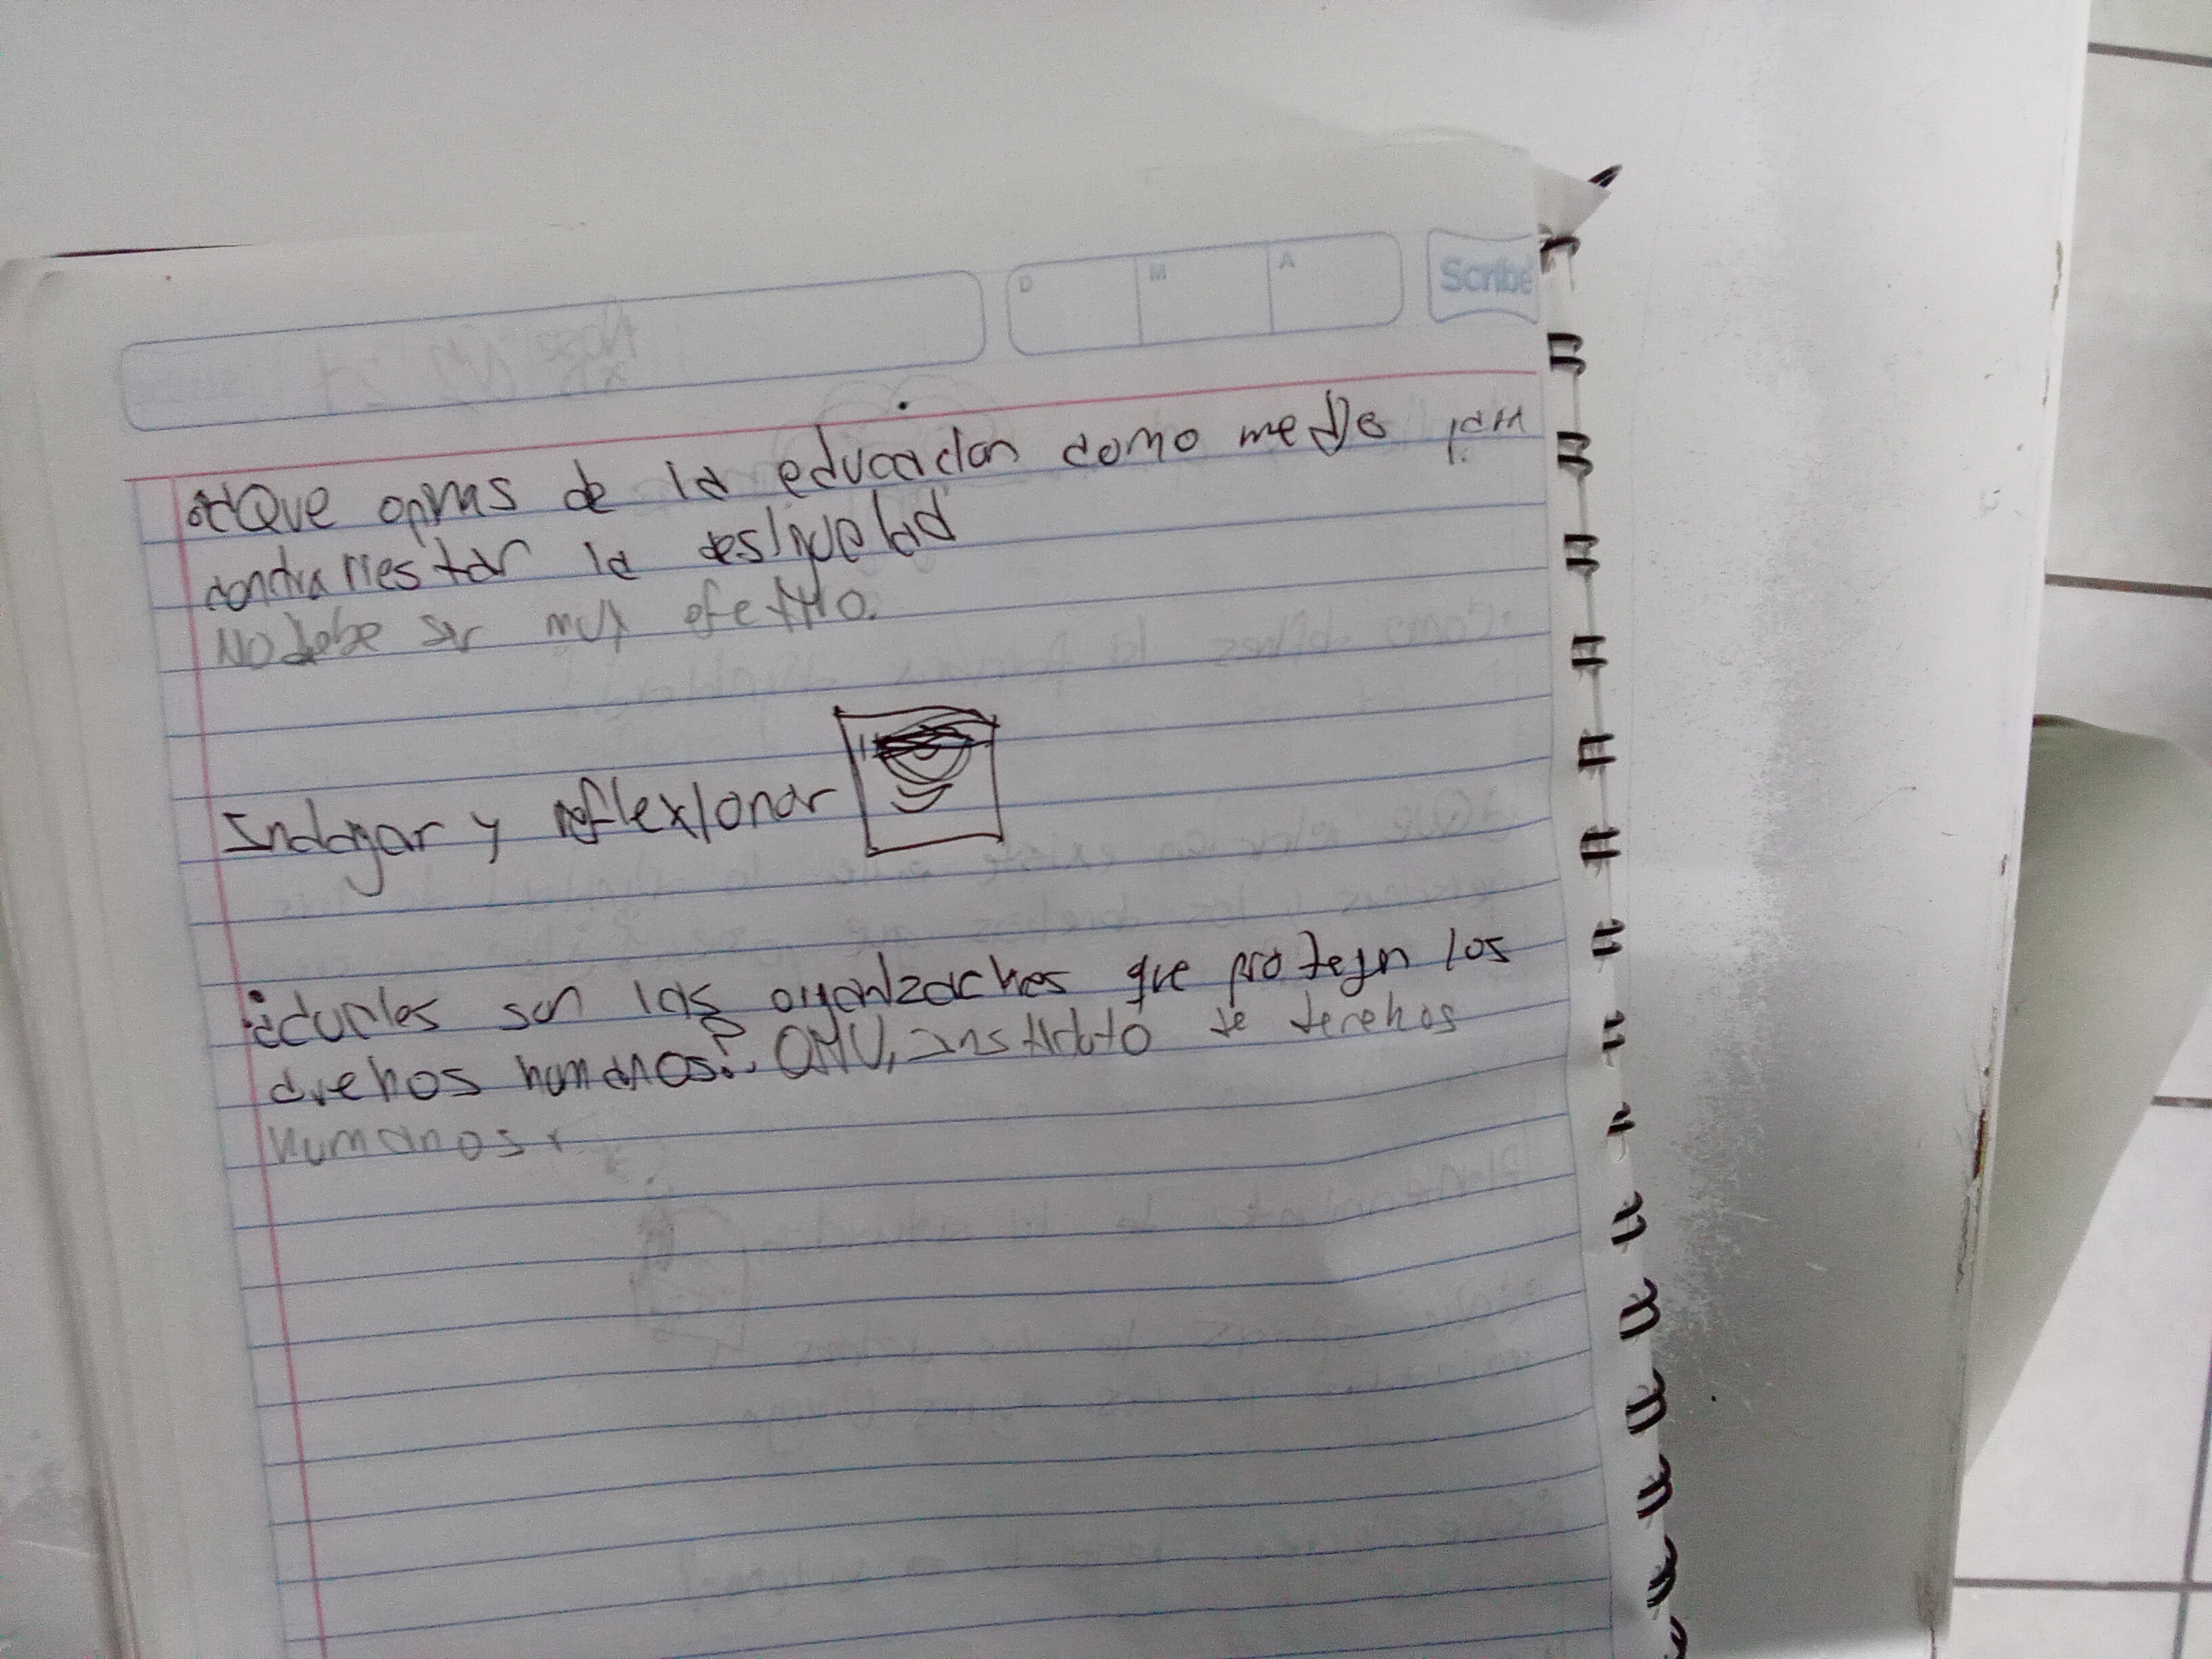 D M A Scribe
¿Que opinas de la educacion como medio para
contrarrestar la desigueldad
No debe ser muy efectivo.
Indagar y reflexionar
¿cuales son las organizaciones que protegen los
derehos humanos? ONU, Instituto de derehos
humanos.